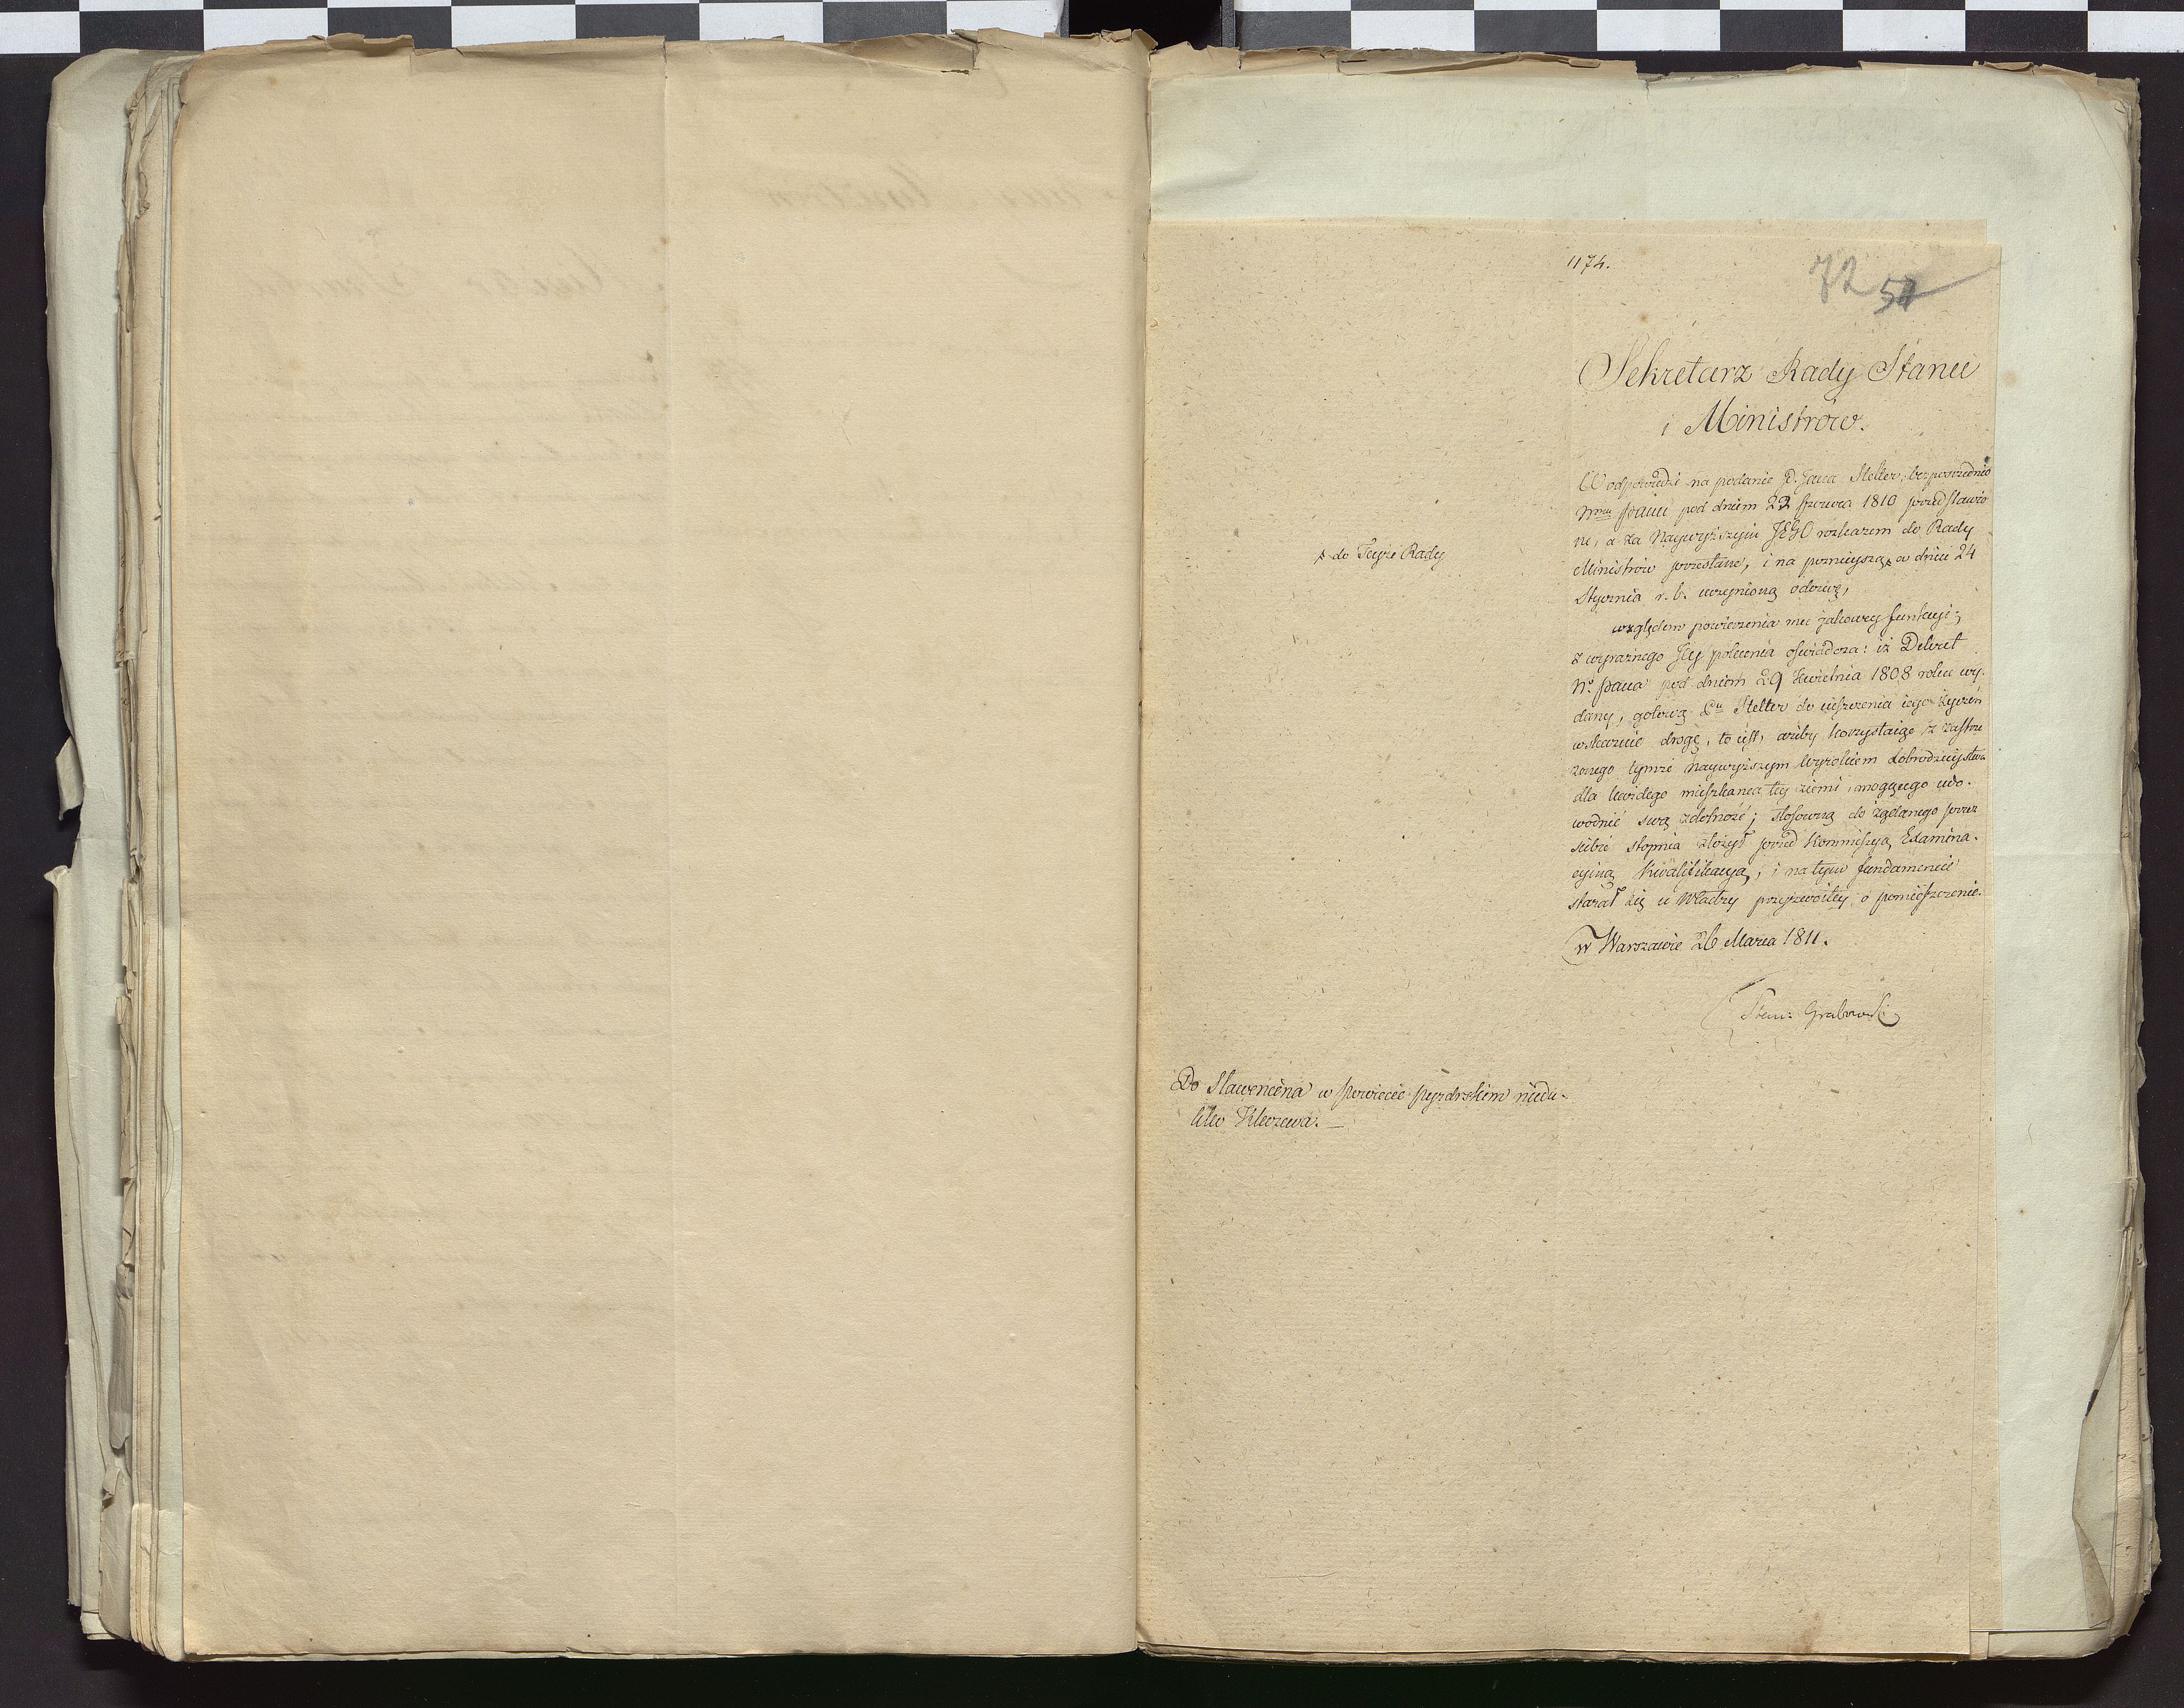 1174.
72 51
Sekretarz Rady Stanu
i Ministrów.
W odpowiedzi na podanie P. Jana Stelter, bezpośrednio
Nmu Panu pod dniem 22 Czerwca 1810 przedstawio
ne, a za Naywyższym JEGO rozkazem do Rady
Ministrów przesłane, i na pomnieyszą ꜭ w dniu 24
Stycznia r. b. uczynioną odezwę,
ꜭ do Teyże Rady
względem powierzenia mu jakowey funkcyi;
z wyraźnego Jey polecenia oświadcza: iż Dekret
No Pana pod dniem 29 Kwietnia 1808 roku wy-
dany, gotową Pu Stelter do uiszczenia iego życzeń
wskazuie drogę, to iest, ażeby korzystaiąc z zastrze
żonego tymże Naywyższym Wyrokiem dobrodzieystwa
dla każdego mieszkańca tey ziemi, mogącego udo-
wodnić swą zdolność; stosowną do żądanego przez
siebie stopnia złożył przed Kommissyą Examina-
cyiną kwalifikacyą, i na tym fundamencie
starał się u Władzy przyzwoitey o pomieszczenie.
w Warszawie 26 Marca 1811.
Stan: Grabowski
Do Sławencina w Powiecie Pyzdrskim nieda-
leko Kleczewa. —